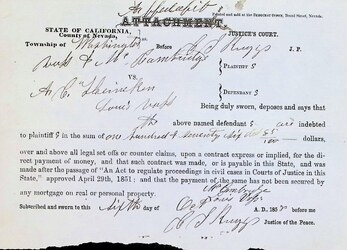 Affidavit
Printed and sold at the Democrat Office, Broad-Street, Nevada.
ATTACHMENT.
STATE OF CALIFORNIA,
County of Nevada,
JUSTICE'S COURT.
Township of Washington Before C S Ruggs J. P.
PLAINTIFF S
VS.
DEFENDANT S
Being duly sworn, deposes and says that
the above named defendant S are indebted
to plaintiff S in the sum of one hundred & seventy six 55/100 dollars,
over and above all legal set offs or counter claims, upon a contract express or implied, for the di-
rect payment of money, and that such contract was made, or is payable in this State, and was
made after the passage of "An Act to regulate proceedings in civil cases in Courts of Justice in this
State," approved April 29th, 1851; and that the payment of the same has not been secured by
any mortgage on real or personal property.
Subscribed and sworn to this sixth day of A. D. 185 before me
C S Ruggs Justice of the Peace.